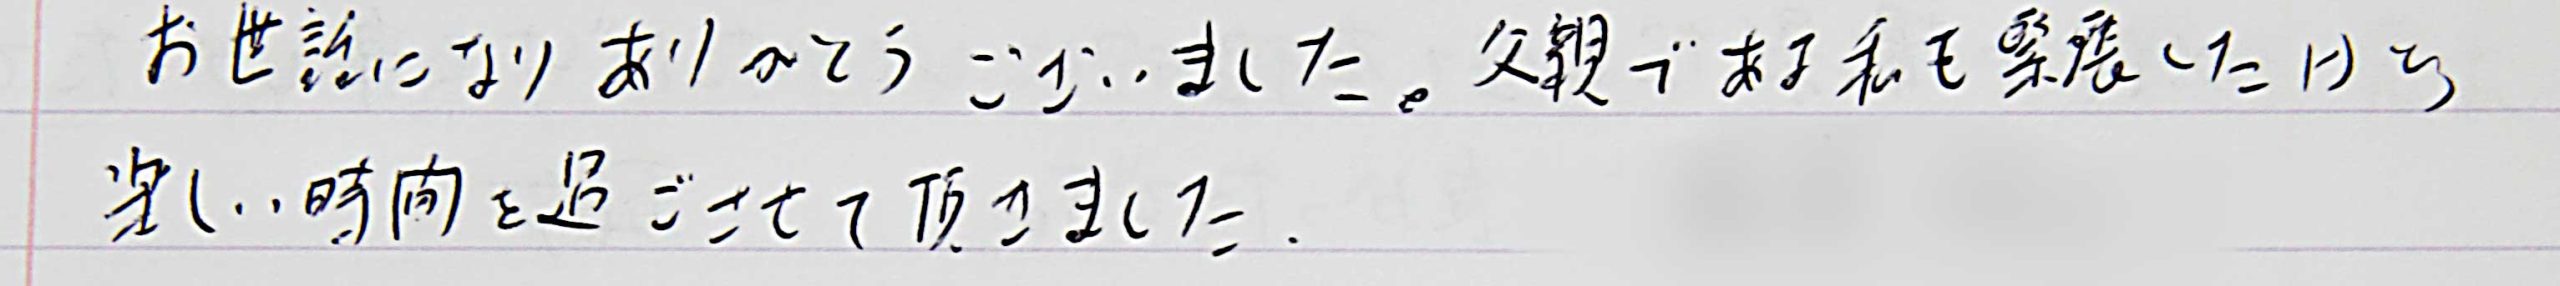 お世話になりありがとうございました。父親である私も緊張したけど
楽しい時間を過ごさせて頂きました.